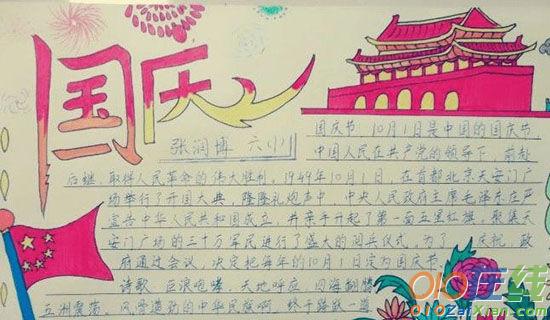 国庆
张润博 六(1)
国庆节，10月1日是中国的国庆节，
中国人民在共产党的领导下，前赴
后继，取得人民革命的伟大胜利，1949年10月1日，在首都北京天安门广
场举行了开国大典，隆隆礼炮声中，中央人民政府主席毛泽东庄严
宣告中华人民共和国成立，并亲手升起了第一面五星红旗，聚集天
安门广场的三十万军民进行了盛大的阅兵仪式，为了 庆祝，政
府通过会议，决定把每年的10月1日定为国庆节。
诗歌 巨浪咆哮，天地呼应，四海翻腾
五洲震荡，风雷激励的中华民族啊，终于踏碎一道
OiO在线
ZaiXian.com